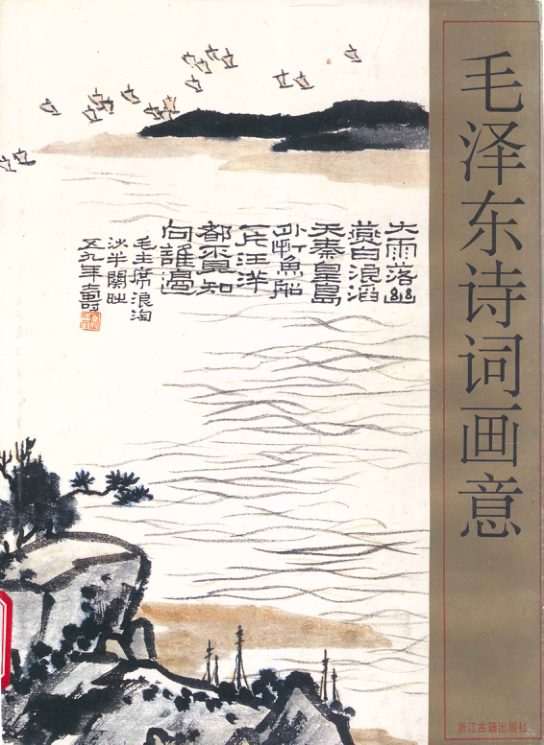 毛泽东诗词画意
大雨落幽
燕白浪滔
天秦皇島
外打魚船
一片汪洋
都不見知
向誰邊
毛主席浪淘
沙半闋
五九年
浙江古籍出版社